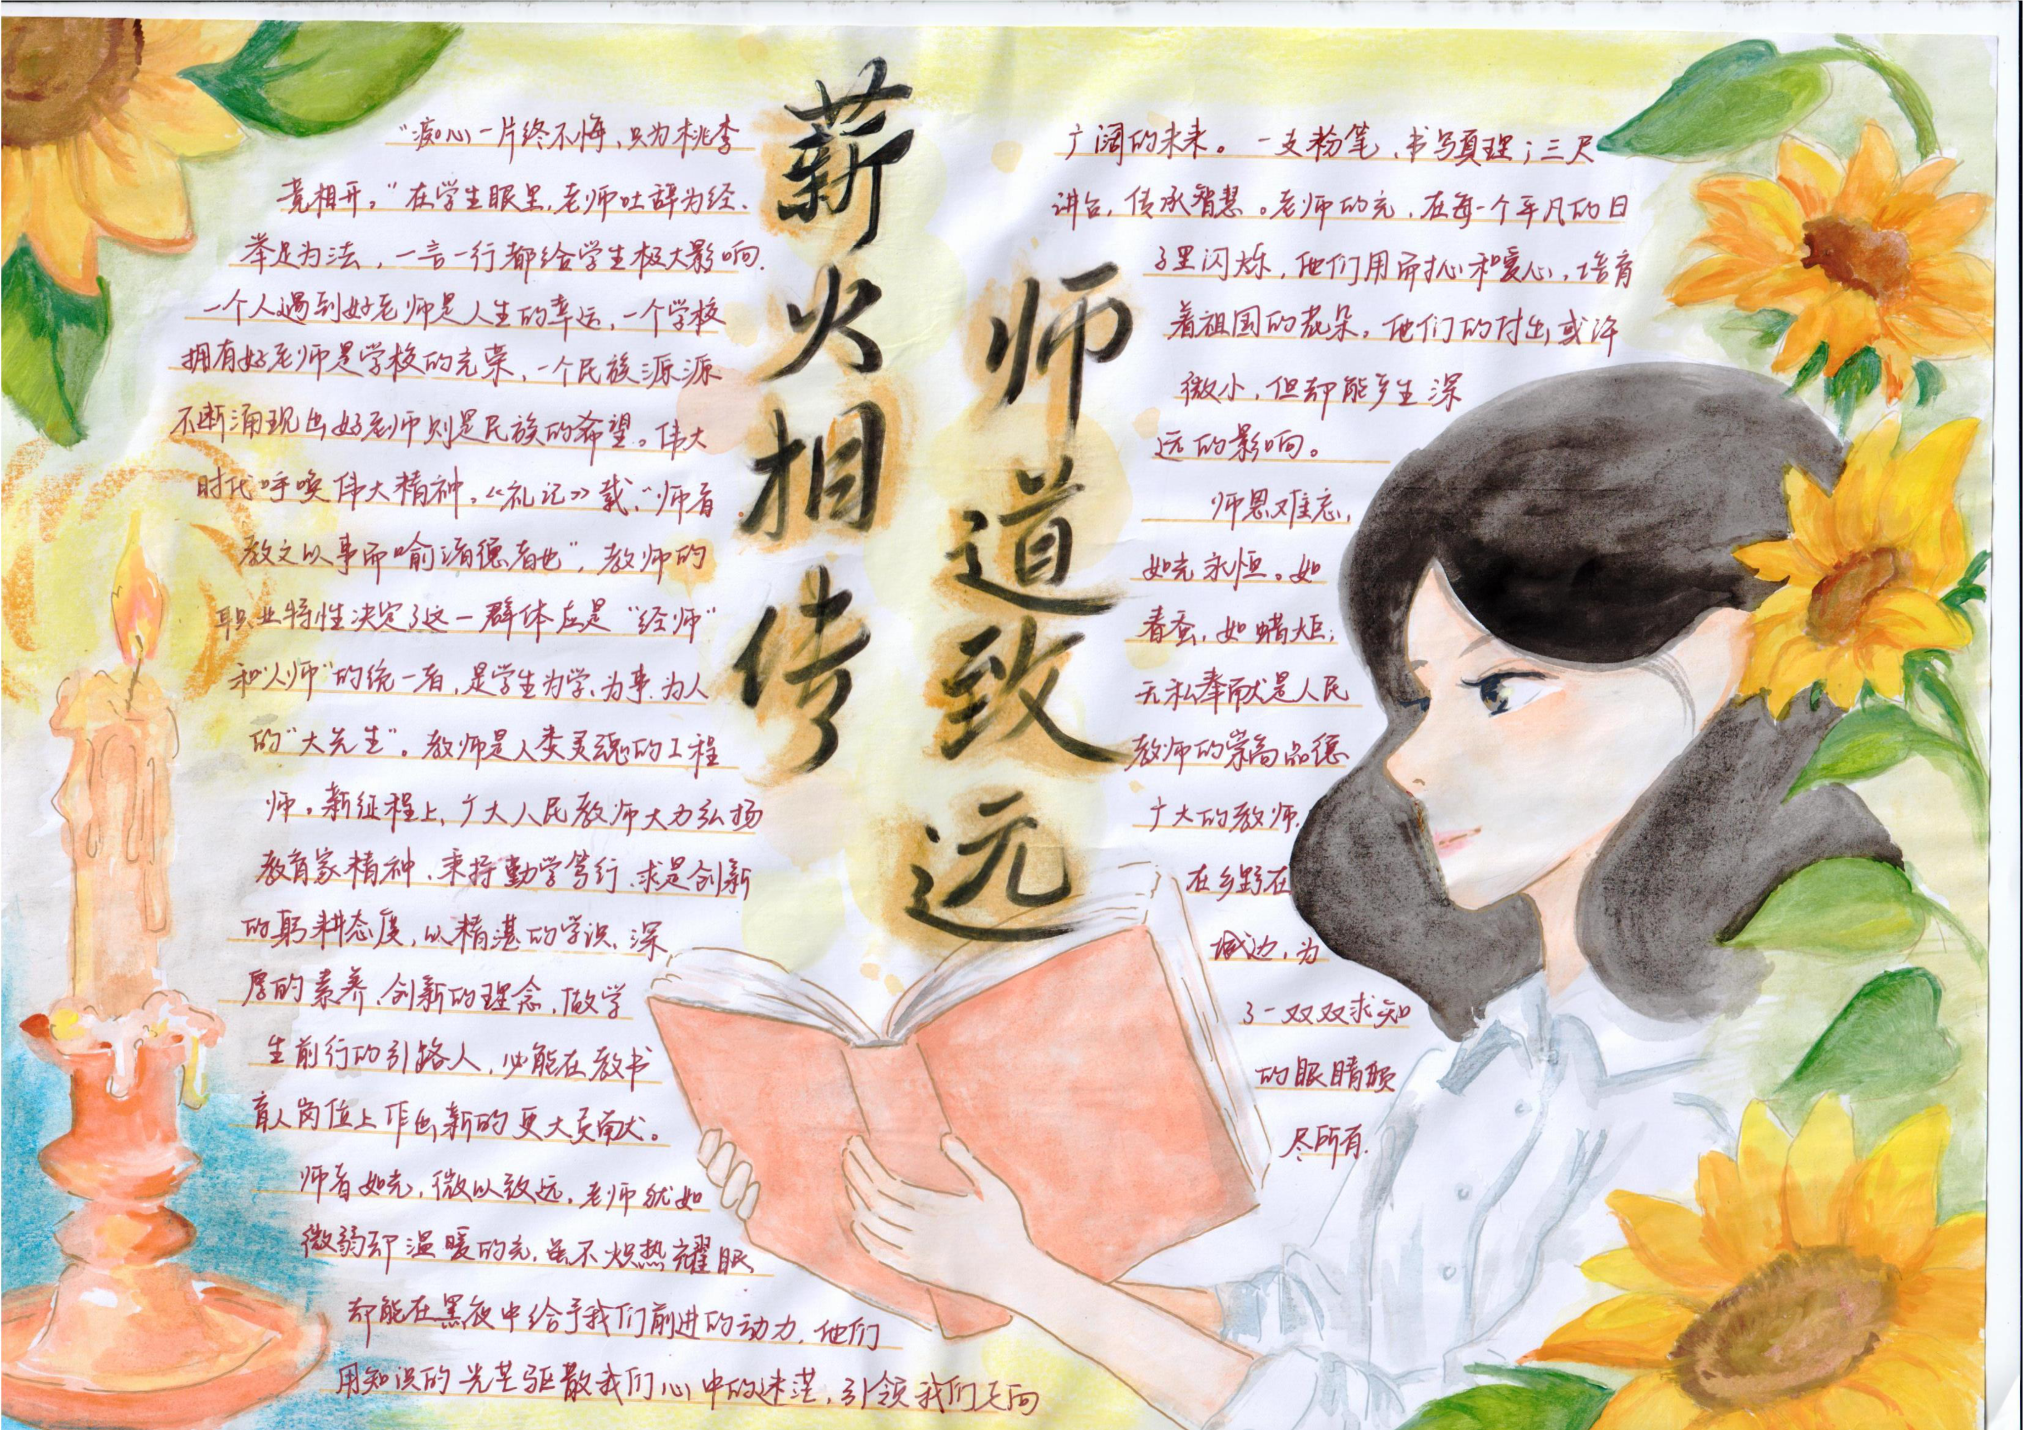 薪火相传
师道致远
"痴心一片终不悔,只为桃李
竞相开。"在学生眼里,老师吐辞为经、
举足为法,一言一行都给学生极大影响.
一个人遇到好老师是人生的幸运,一个学校
拥有好老师是学校的光荣,一个民族源源
不断涌现出好老师则是民族的希望。伟大
时代呼唤伟大精神。《礼记》载,"师者
教之以事而喻诸德者也",教师的
职业特性决定了这一群体应是"经师"
和"人师"的统一者,是学生为学、为事、为人
的"大先生"。教师是人类灵魂的工程
师。新征程上,广大人民教师大力弘扬
教育家精神、秉持勤学笃行、求是创新
的躬耕态度,以精湛的学识、深
厚的素养、创新的理念,做学
生前行的引路人,必能在教书
育人岗位上作出新的更大贡献。
师者如光,微以致远,老师就如
微弱却温暖的光,虽不炽热耀眼
却能在黑夜中给予我们前进的动力,他们
用知识的光芒驱散我们心中的迷茫,引领我们走向
广阔的未来。一支粉笔、书写真理;三尺
讲台,传承智慧。老师的光,在每一个平凡的日
子里闪烁,他们用耐心和爱心,培育
着祖国的花朵,他们的付出或许
微小,但却能产生深
远的影响。
师恩难忘,
如光永恒。如
春蚕,如蜡炬;
无私奉献是人民
教师的崇高品德
广大的教师,
在乡野在
城边,为
了一双双求知
的眼睛顷
尽所有.